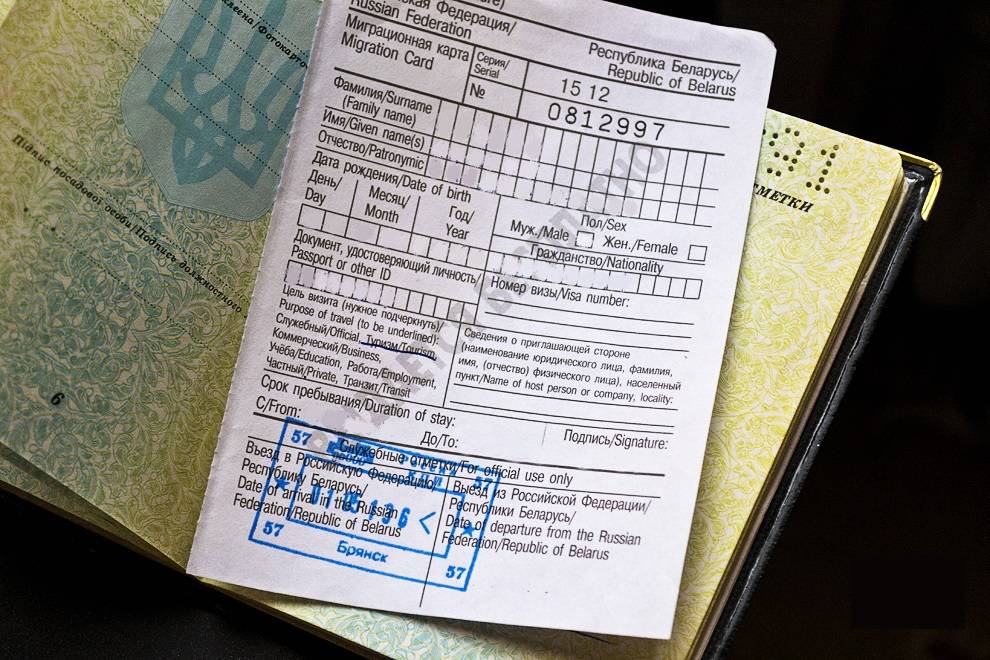 ская Федерация/
Russian Federation
Республика Беларусь/
Republic of Belarus
Миграционная карта
Migration Card
Серия/
Serial
15 12
№
0812997
Фамилия/Surname
(Family name)
Имя/Given name(s)
Отчество/Patronymic
Дата рождения/Date of birth
День/
Day
Месяц/
Month
Год/
Year
Пол/Sex
Муж./Male
Жен./Female
Гражданство/Nationality
Документ, удостоверяющий личность/
Passport or other ID
Номер визы/Visa number:
Цель визита (нужное подчеркнуть)/
Purpose of travel (to be underlined):
Служебный/Official, Туризм/Tourism,
Коммерческий/Business,
Учёба/Education, Работа/Employment,
Частный/Private, Транзит/Transit
Сведения о приглашающей стороне
(наименование юридического лица, фамилия,
имя, (отчество) физического лица), населенный
пункт/Name of host person or company, locality:
Срок пребывания/Duration of stay:
С/From:
До/To:
Подпись/Signature:
Служебные отметки/For official use only
Въезд в Российскую Федерацию/
Республику Беларусь/
Date of arrival in the Russian
Federation/Republic of Belarus
Выезд из Российской Федерации/
Республики Беларусь/
Date of departure from the Russian
Federation/Republic of Belarus
57
57
57
Брянск
57
Підпис посадової особи/Подпись должностного
6
МЕТКИ